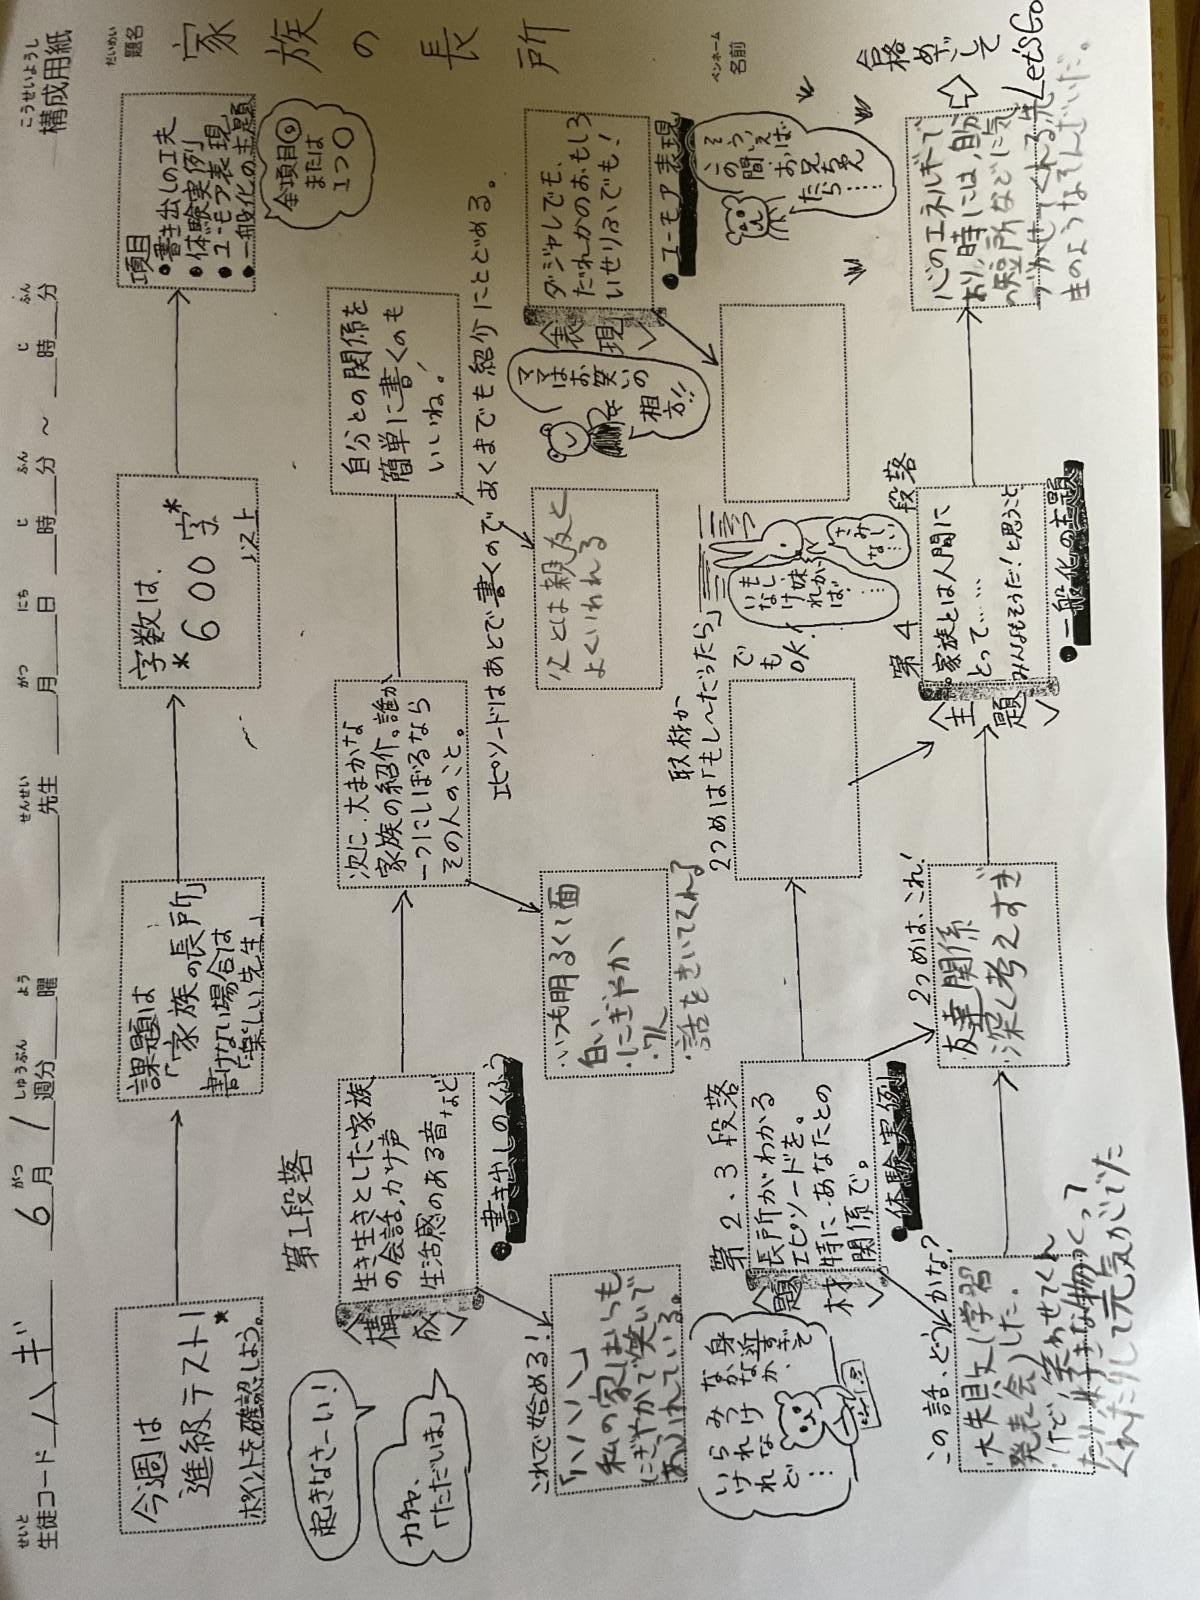 こうせいようし
構成用紙
せいと
生徒コード ハギ
がつ しゅうぶん よう
6月1週分 曜
せんせい
先生
がつ にち じ ふん じ ふん
月 日 時 分 ~ 時 分
だいめい
題名
家族の長所
ペンネーム
名前
今週は
進級テスト*
ポイントを確認しよう。
課題は
「家族の長所」
書けない場合は
「楽しい先生」
字数は、
*600字*
以上
項目
●書き出しの工夫
●体験実例
●ユーモア表現
●一般化の主題
全項目◎
または
1つ○
起きなさーい!
ガチャ、
「ただいま」
第1段落
<構成>
生き生きとした家族
の会話、かけ声
生活感のある音など
●書き出しのくふう
次に、大まかな
家族の紹介。誰か
一つにしぼるなら
その人のこと。
自分との関係を
簡単に書くのも
いいね!
エピソードはあとで書くので、あくまでも紹介にとどめる。
これで始める!
「ハハハハ」
私の家はいつも
にぎやかで笑いで
あふれている。
・いつも明るくて面
白い
・にぎやか
・7人
・話をきいてくれる
父とは親友と
よくいわれる
ダジャレでも、
だれかのおもしろ
いせりふでも!
<表現>
●ユーモア表現
ママはお笑いの
相方!!
そういえば
この間、お兄ちゃん
たら……
いけれど…
らみつけれない
なかな
身近すぎて
第2.3段落
<題材>
長所がわかる
エピソードを。
特に、あなたとの
関係で。
●体験実例
取材か
2つめは「もし~だったら」
でも
OK!
もし妹が
いなければ……
さみしい…
この話、どうかな?
・大失敗(学習
発表会)した。
2つめは、これ!
・友達関係
・深く考えすぎ
第4段落
<主題>
○家族とは人間に
とって……
みんなもそうだ!と思うこと
●一般化の主題
心のエネルギーで
あり、時には、自分
の短所などに気
づかせてくれる先
生のようなそんざいだ。
合格
めざして
Let'sGo